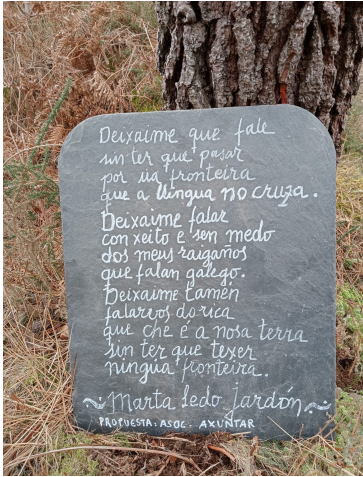 Deixaime que fale
sin ter que pasar
por ua fronteira
que a llingua no cruza.
Deixaime falar
con xeito e sen medo
dos meus raigaños
que falan galego.
Deixaime tamén
falarvos do rica
que che é a nosa terra
sin ter que texer
ningua fronteira.
~ Marta Ledo Jardón ~
PROPUESTA: ASOC. AXUNTAR